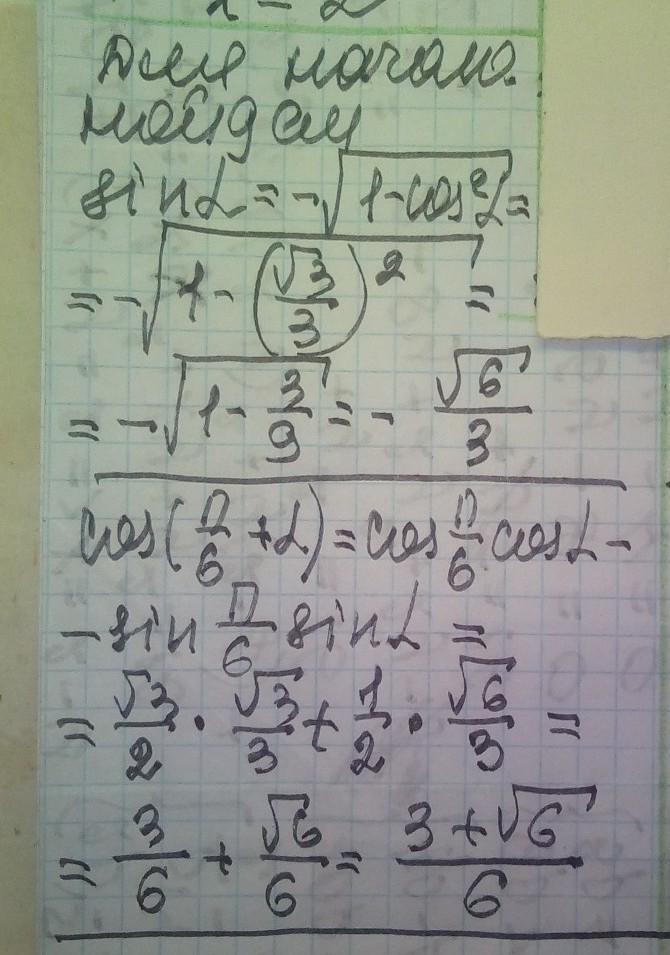 Для начала
найдем
sin α = -√(1-cos²α) =
= -√(1 - (√3/3)²) =
= -√(1 - 3/9) = - √6/3
cos(π/6 + α) = cos π/6 cos α -
- sin π/6 sin α =
= √3/2 · √3/3 + 1/2 · √6/3 =
= 3/6 + √6/6 = (3 + √6)/6